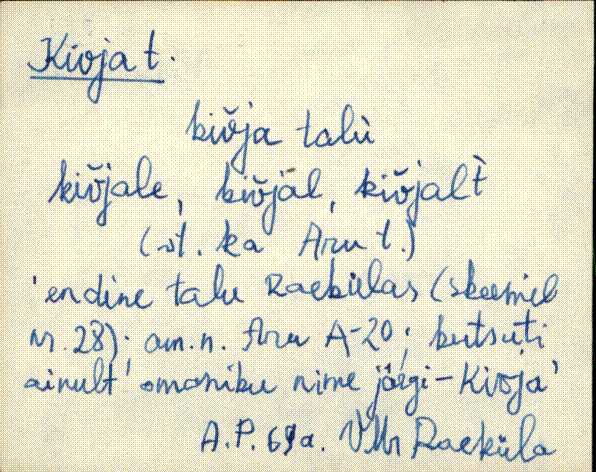 Kivja t.
kiv̆ja talù
kiv̆jale, kiv̆jāl, kiv̆jalt̀
(vt. ka Aru t.)
'endine talu Raekülas (skeemil
nr. 28); am.n. Aru A-20; kutsuti
ainult omaniku nime järgi - Kivja'
A.P. 69a. V.Mr Raeküla